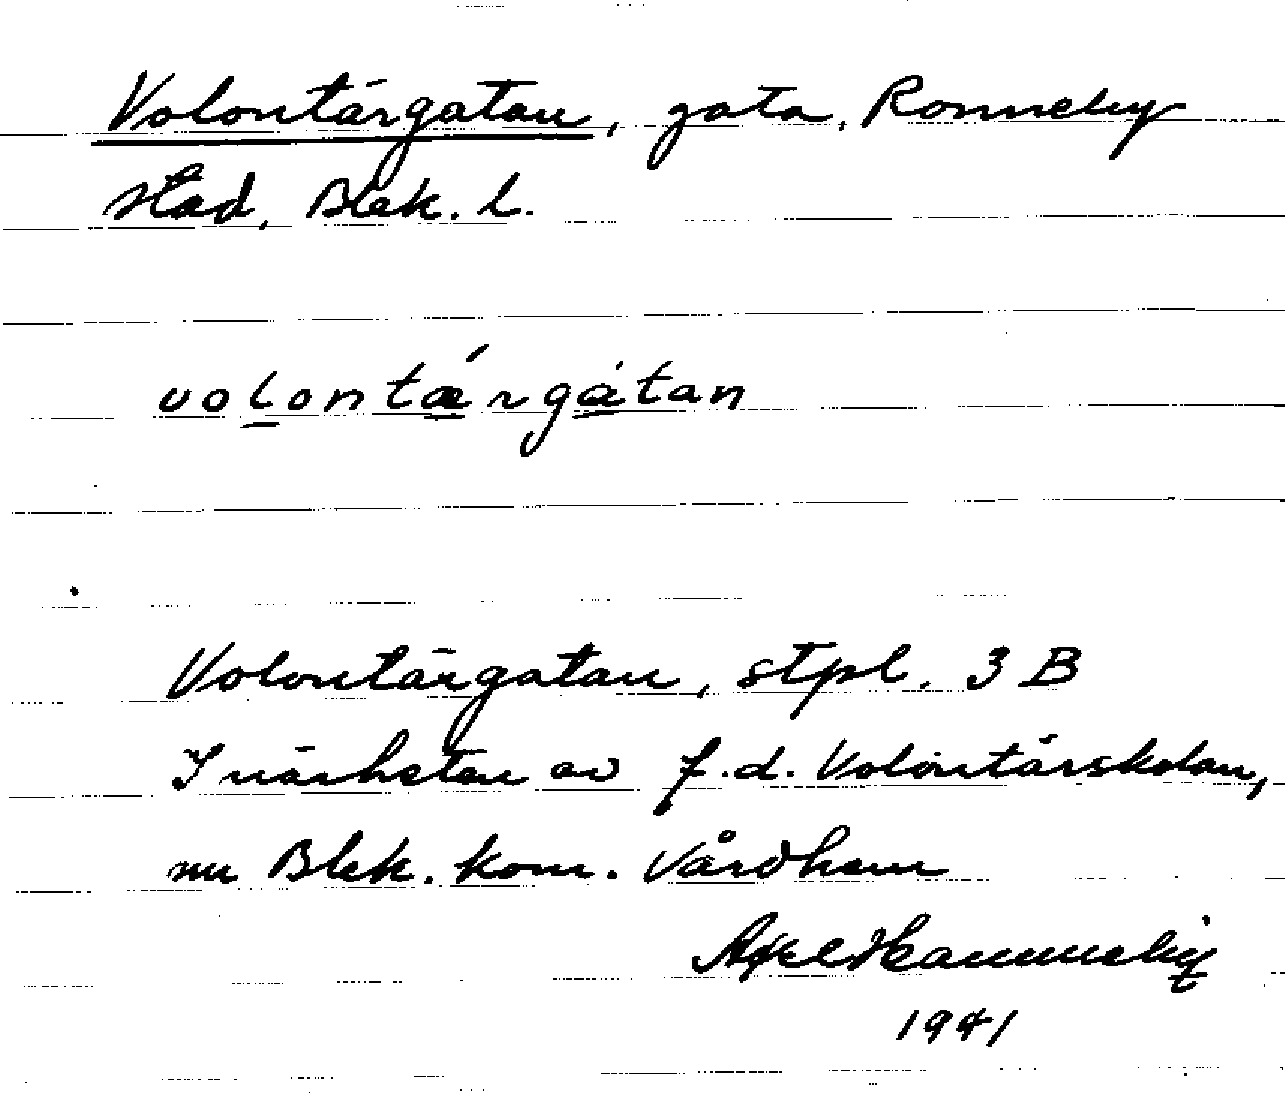 Volontärgatan, gata, Ronneby
stad, Blek. l.
volontǽrgátan
Volontärgatan, stpl. 3 B
I närheten av f.d. Volontärskolan,
nu Blek. kom. Vårdhem
Axel
1941